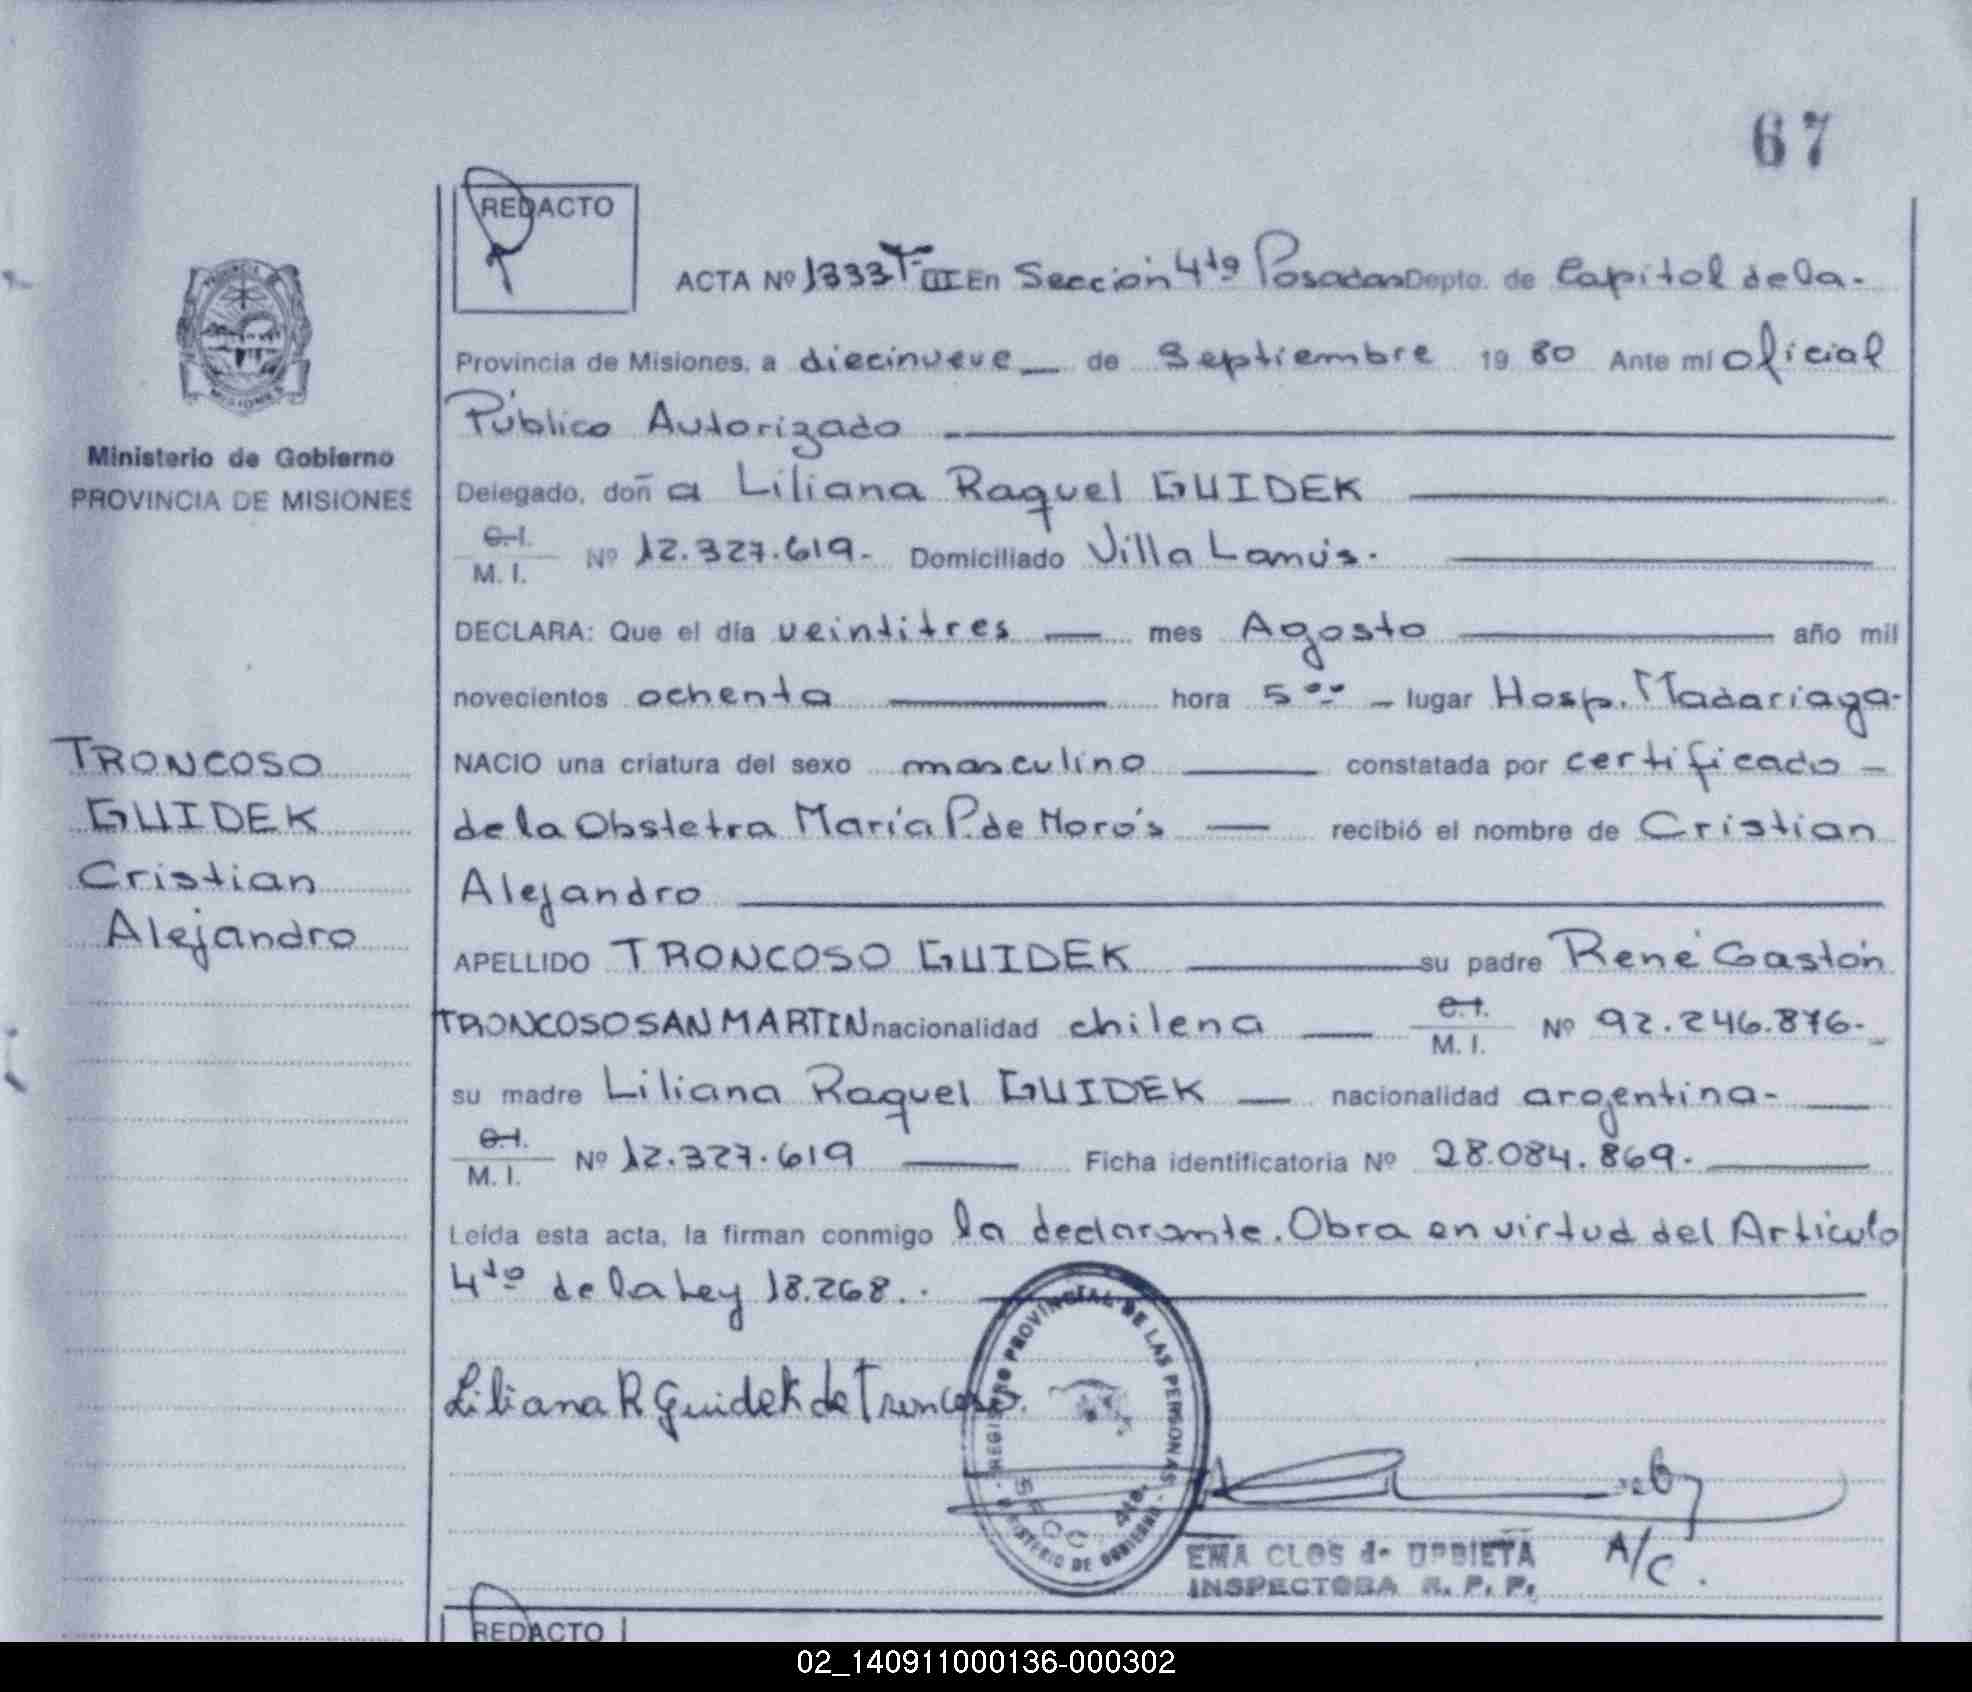 67
REDACTO
ACTA Nº 1333 T-III En Sección 4ta Posadas Depto. de Capital de la-
Provincia de Misiones, a diecinueve de Septiembre 19 80 Ante mí Oficial
Público Autorizado
Delegado, doña Liliana Raquel GUIDEK
C.I.
M. I. Nº 12.327.619.- Domiciliado Villa Lanús.
DECLARA: Que el día veintitres mes Agosto año mil
novecientos ochenta hora 5 00 - lugar Hosp. Madariaga-
NACIO una criatura del sexo masculino constatada por certificado -
de la Obstetra María P. de Morós recibió el nombre de Cristian
Alejandro
APELLIDO TRONCOSO GUIDEK su padre René Gastón
TRONCOSO SAN MARTIN nacionalidad chilena C.I.
M. I. Nº 92.246.876.-
su madre Liliana Raquel GUIDEK nacionalidad argentina-
C.I.
M. I. Nº 12.327.619 Ficha identificatoria Nº 28.084.869.
Leída esta acta, la firman conmigo la declarante. Obra en virtud del Artículo
4to de la Ley 18.268.
Liliana R Guidek de Troncoso.
REGISTRO PROVINCIAL DE LAS PERSONAS
MINISTERIO DE GOBIERNO
SECC. 4ta.
EMA CLOS de URBIETA A/C.
INSPECTORA R. P. P.
REDACTO
PROVINCIA DE
MISIONES
Ministerio de Gobierno
PROVINCIA DE MISIONES
TRONCOSO
GUIDEK
Cristian
Alejandro
02_140911000136-000302